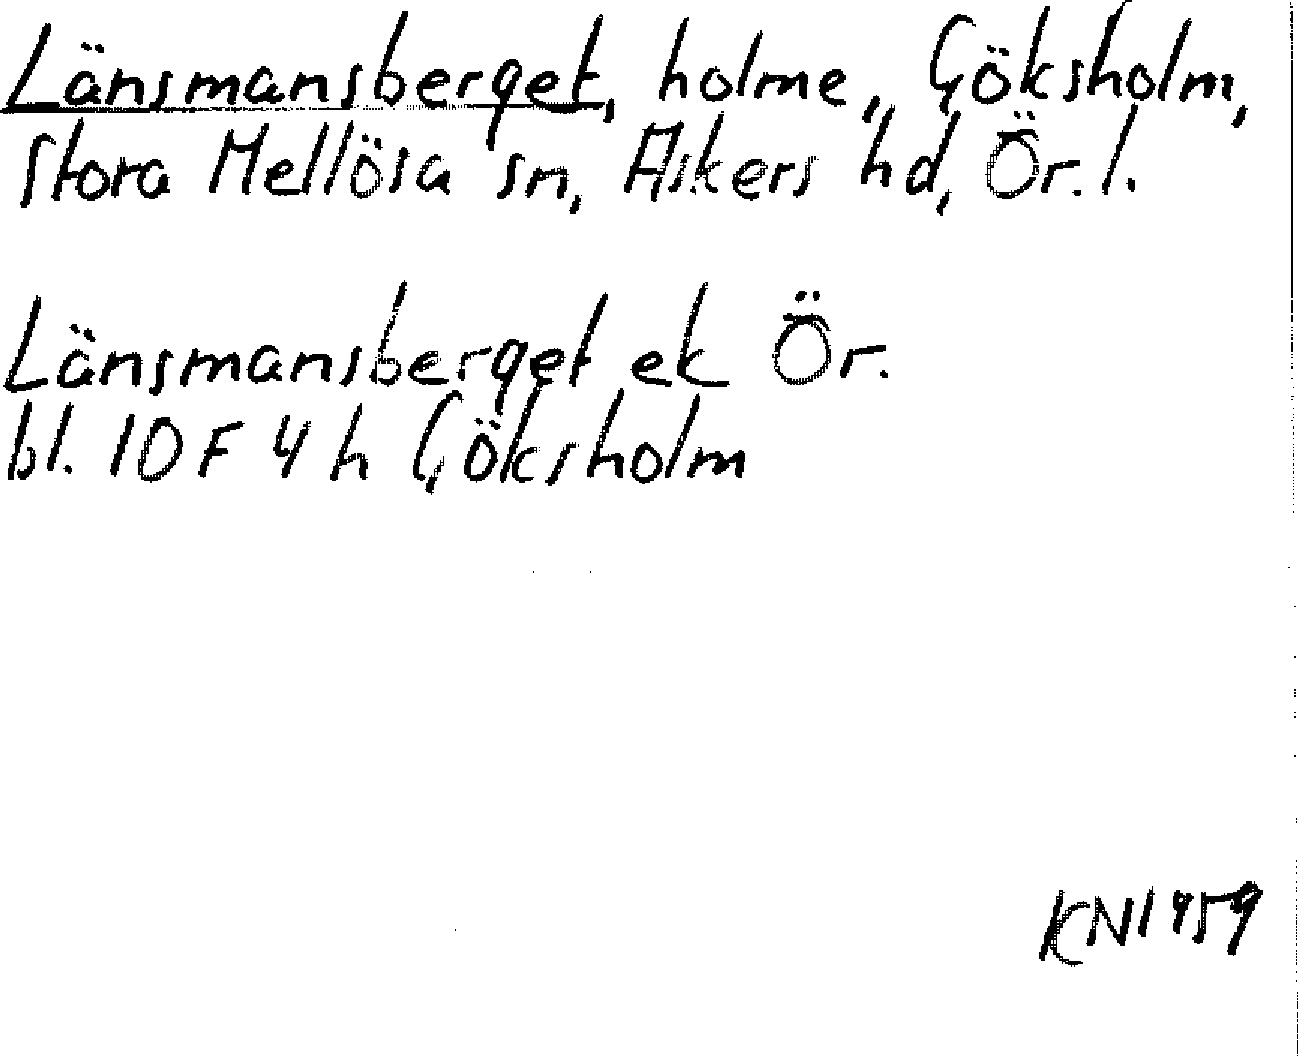 Länsmansberget, holme, Göksholm,
Stora Mellösa sn, Askers hd, Ör. l.
Länsmansberget ek Ör.
bl. 10 F 4 h Göksholm
KN1959